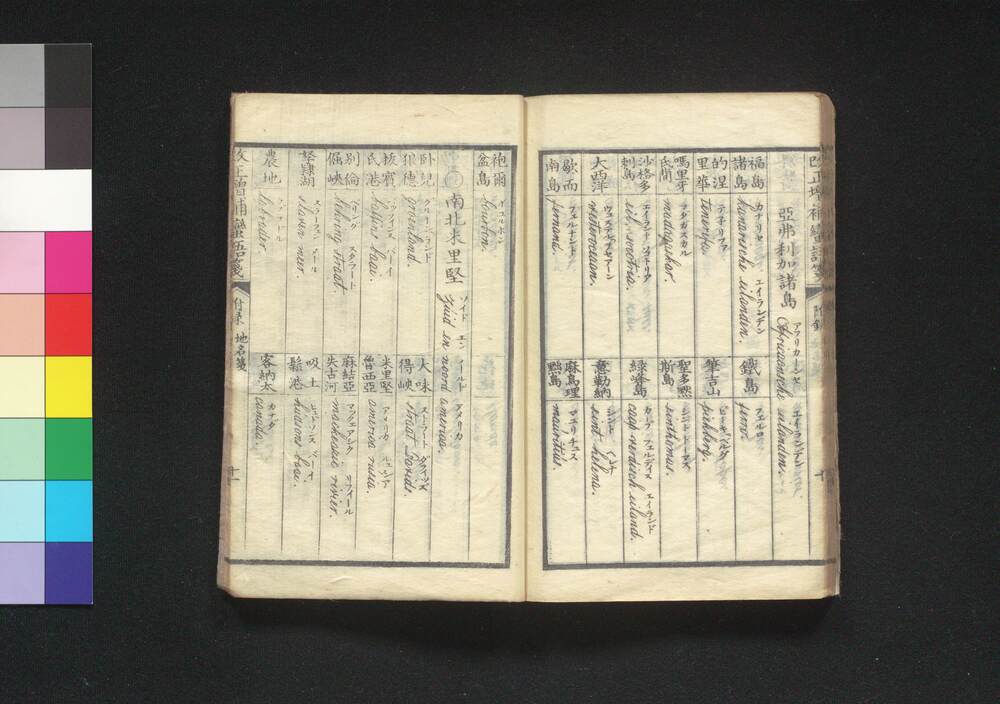 改正增補蠻語箋
附錄
十
亞弗利加諸島
アフリカーンセ エイランデン
Africaänsche eilanden.
福島諸島
カナリセ エイランデン
kanarische eilanden.
鐵島
フェルロ
ferro.
的涅里華
テネリファ
tenerife.
筆言山
piekberg.
嗎里呀氏間
マダガスカル
madagaskar.
聖多黙斯島
シントトーマス
sint thomas.
沙格多剌島
エイランド ソコトリア
eil. socotria.
綠峰島
カープ フェルディス エイランド
caap verdisch eiland.
大西洋
ウェステルオセアーン
westeroceaan.
意勒納
シント ヘレナ
sint helena.
歇而南島
フェルナンド
fernand.
麻烏理黙島
マユリチュス
mauritius.
袍爾盆島
ボュルボン
bourbon.
南北米里堅
ゾイド エン ノールド アメリカ
zuid en noord america.
臥兒狼德
グリーンランド
groenland.
大味得峽
ストラート ダヴィッズ
straat Davids.
抜賓氏港
baffins baai.
米里堅魯西亞
アメリカ ルシア
america rusia.
別倫倔峽
ベーリング スタラート
behring straat.
麻結亞失古河
リフィール
mackensie rivier.
孥隸湖
スラーフェン メール
slaven meer.
吸土鬆港
ヒュドソンス バアイ
hudsons baai.
農地
labrador.
客納太
カナダ
canada.
改正增補蠻語箋
附錄 地名箋
十一